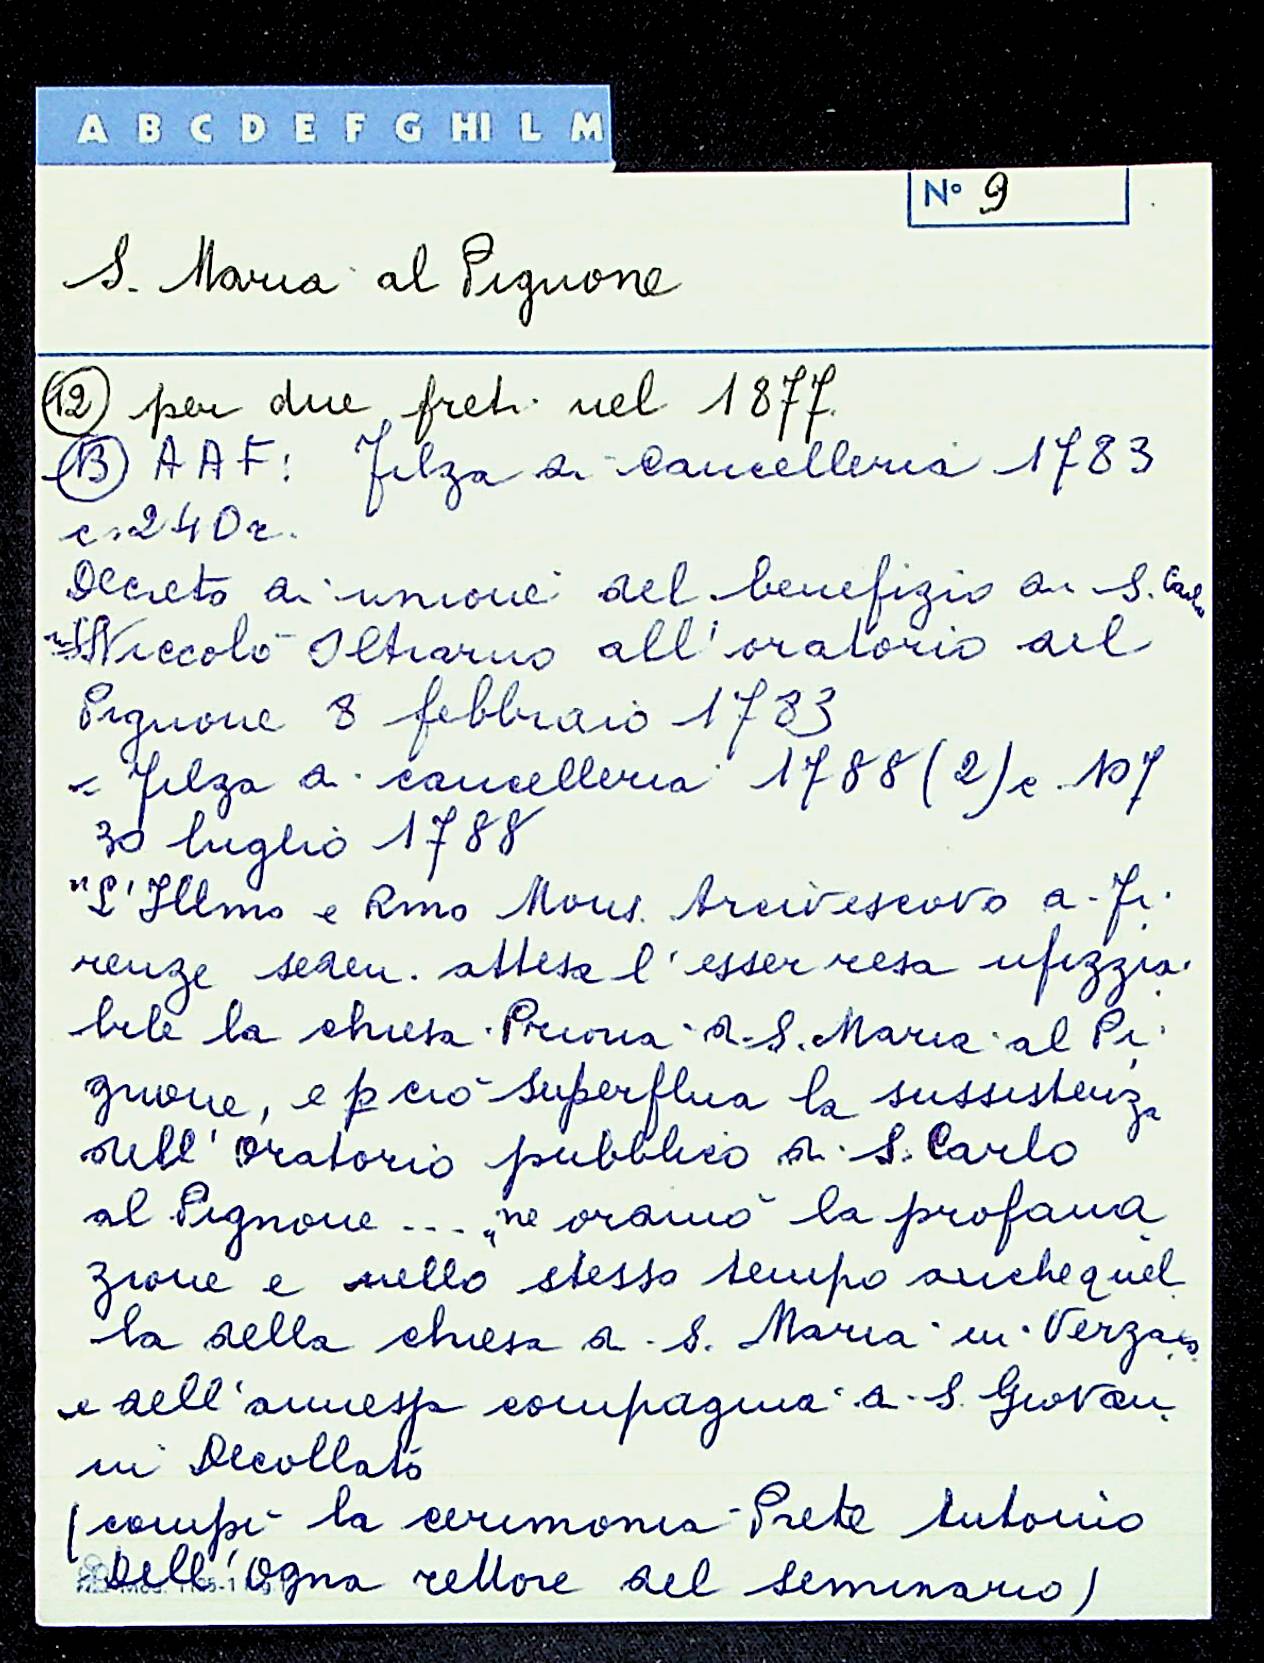 A B C D E F G HI L M
N° 9
S. Maria al Pignone
12 per due preti nel 1877.
13 AAF: Filza di Cancelleria 1783
c. 240r.
Decreto di unione del benefizio di S. Carlo
Niccolò Oltrarno all'oratorio del
Pignone 8 febbraio 1783
= Filza di cancelleria 1788 (2) c. 107
30 luglio 1788
"L'Illmo e Rmo Mons. Arcivescovo di Fi
renze seden. attesa l'esser resa ufizzia
bile la chiesa Prioria di S. Maria al Pi
gnone, e p ciò superflua la sussistenza
dell'Oratorio pubblico di S. Carlo
al Pignone ... "ne ordinò la profana
zione e nello stesso tempo anche quel
la della chiesa di S. Maria in Verzaia
e dell'annessa compagnia di S. Giovan
ni Decollato
(compì la cerimonia Prete Antonio
Dell'Ogna rettore del seminario)